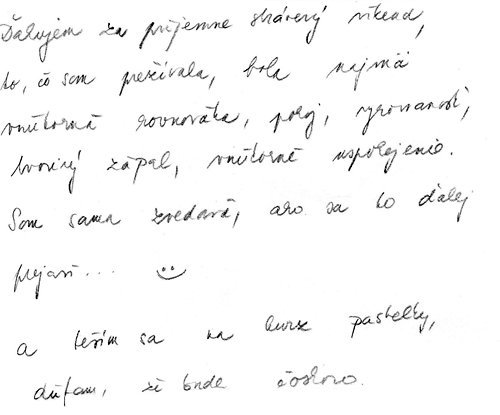 Ďakujem za príjemne strávený víkend,
to, čo som prežívala, bola najmä
vnútorná rovnováha, pokoj, vyrovnanosť,
tvorivý zápal, vnútorné uspokojenie.
Som sama zvedavá, ako sa to ďalej
prejaví... :)
a teším sa na kurz pastelky,
dúfam, že bude čoskoro.